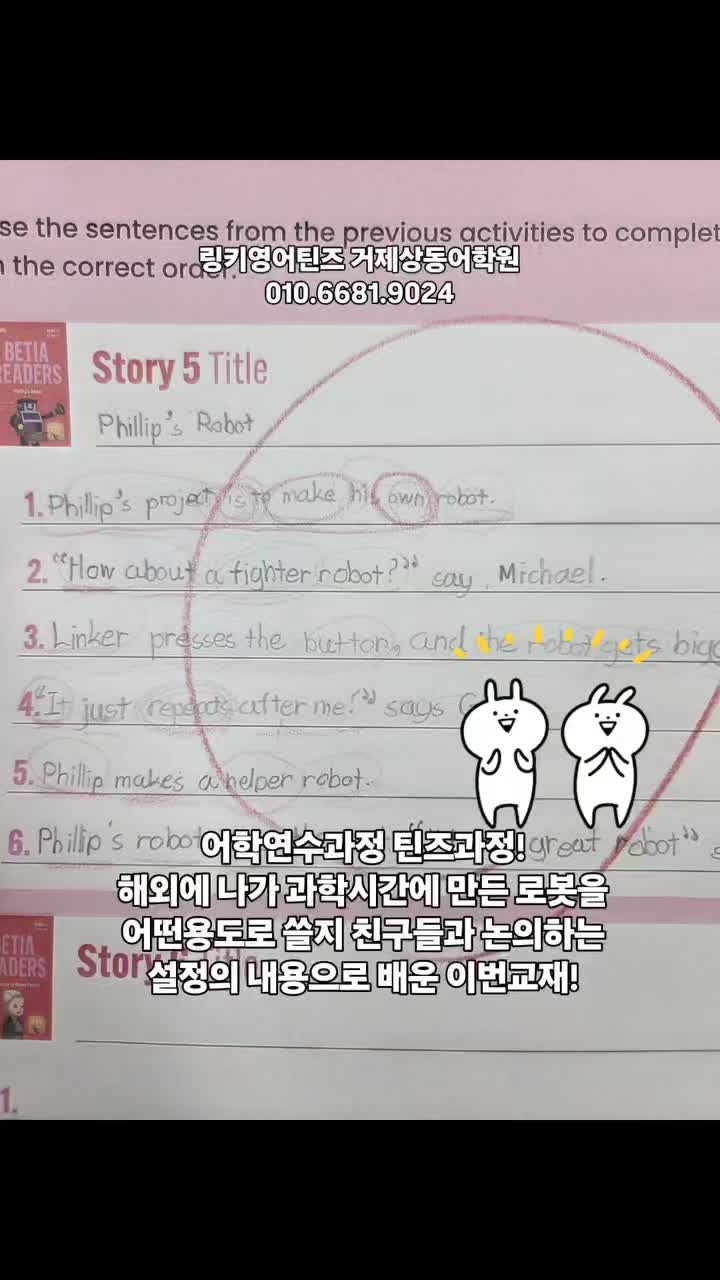 se the sentences from the previous activities to complet
n the correct order.
링키영어틴즈 거제상동어학원
010.6681.9024
BETIA
READERS
Story 5 Title
Phillip's Robot
1. Phillip's project is to make his own robot.
2. "How about a fighter robot?" say Michael.
3. Linker presses the button, and the robot gets bigg
4. "It just repeats after me!" says
5. Phillip makes a helper robot.
6. Phillip's robot great robot" s
어학연수과정 틴즈과정!
해외에 나가 과학시간에 만든 로봇을
어떤용도로 쓸지 친구들과 논의하는
설정의 내용으로 배운 이번교재!
ETIA
ADERS
Story Title
1.